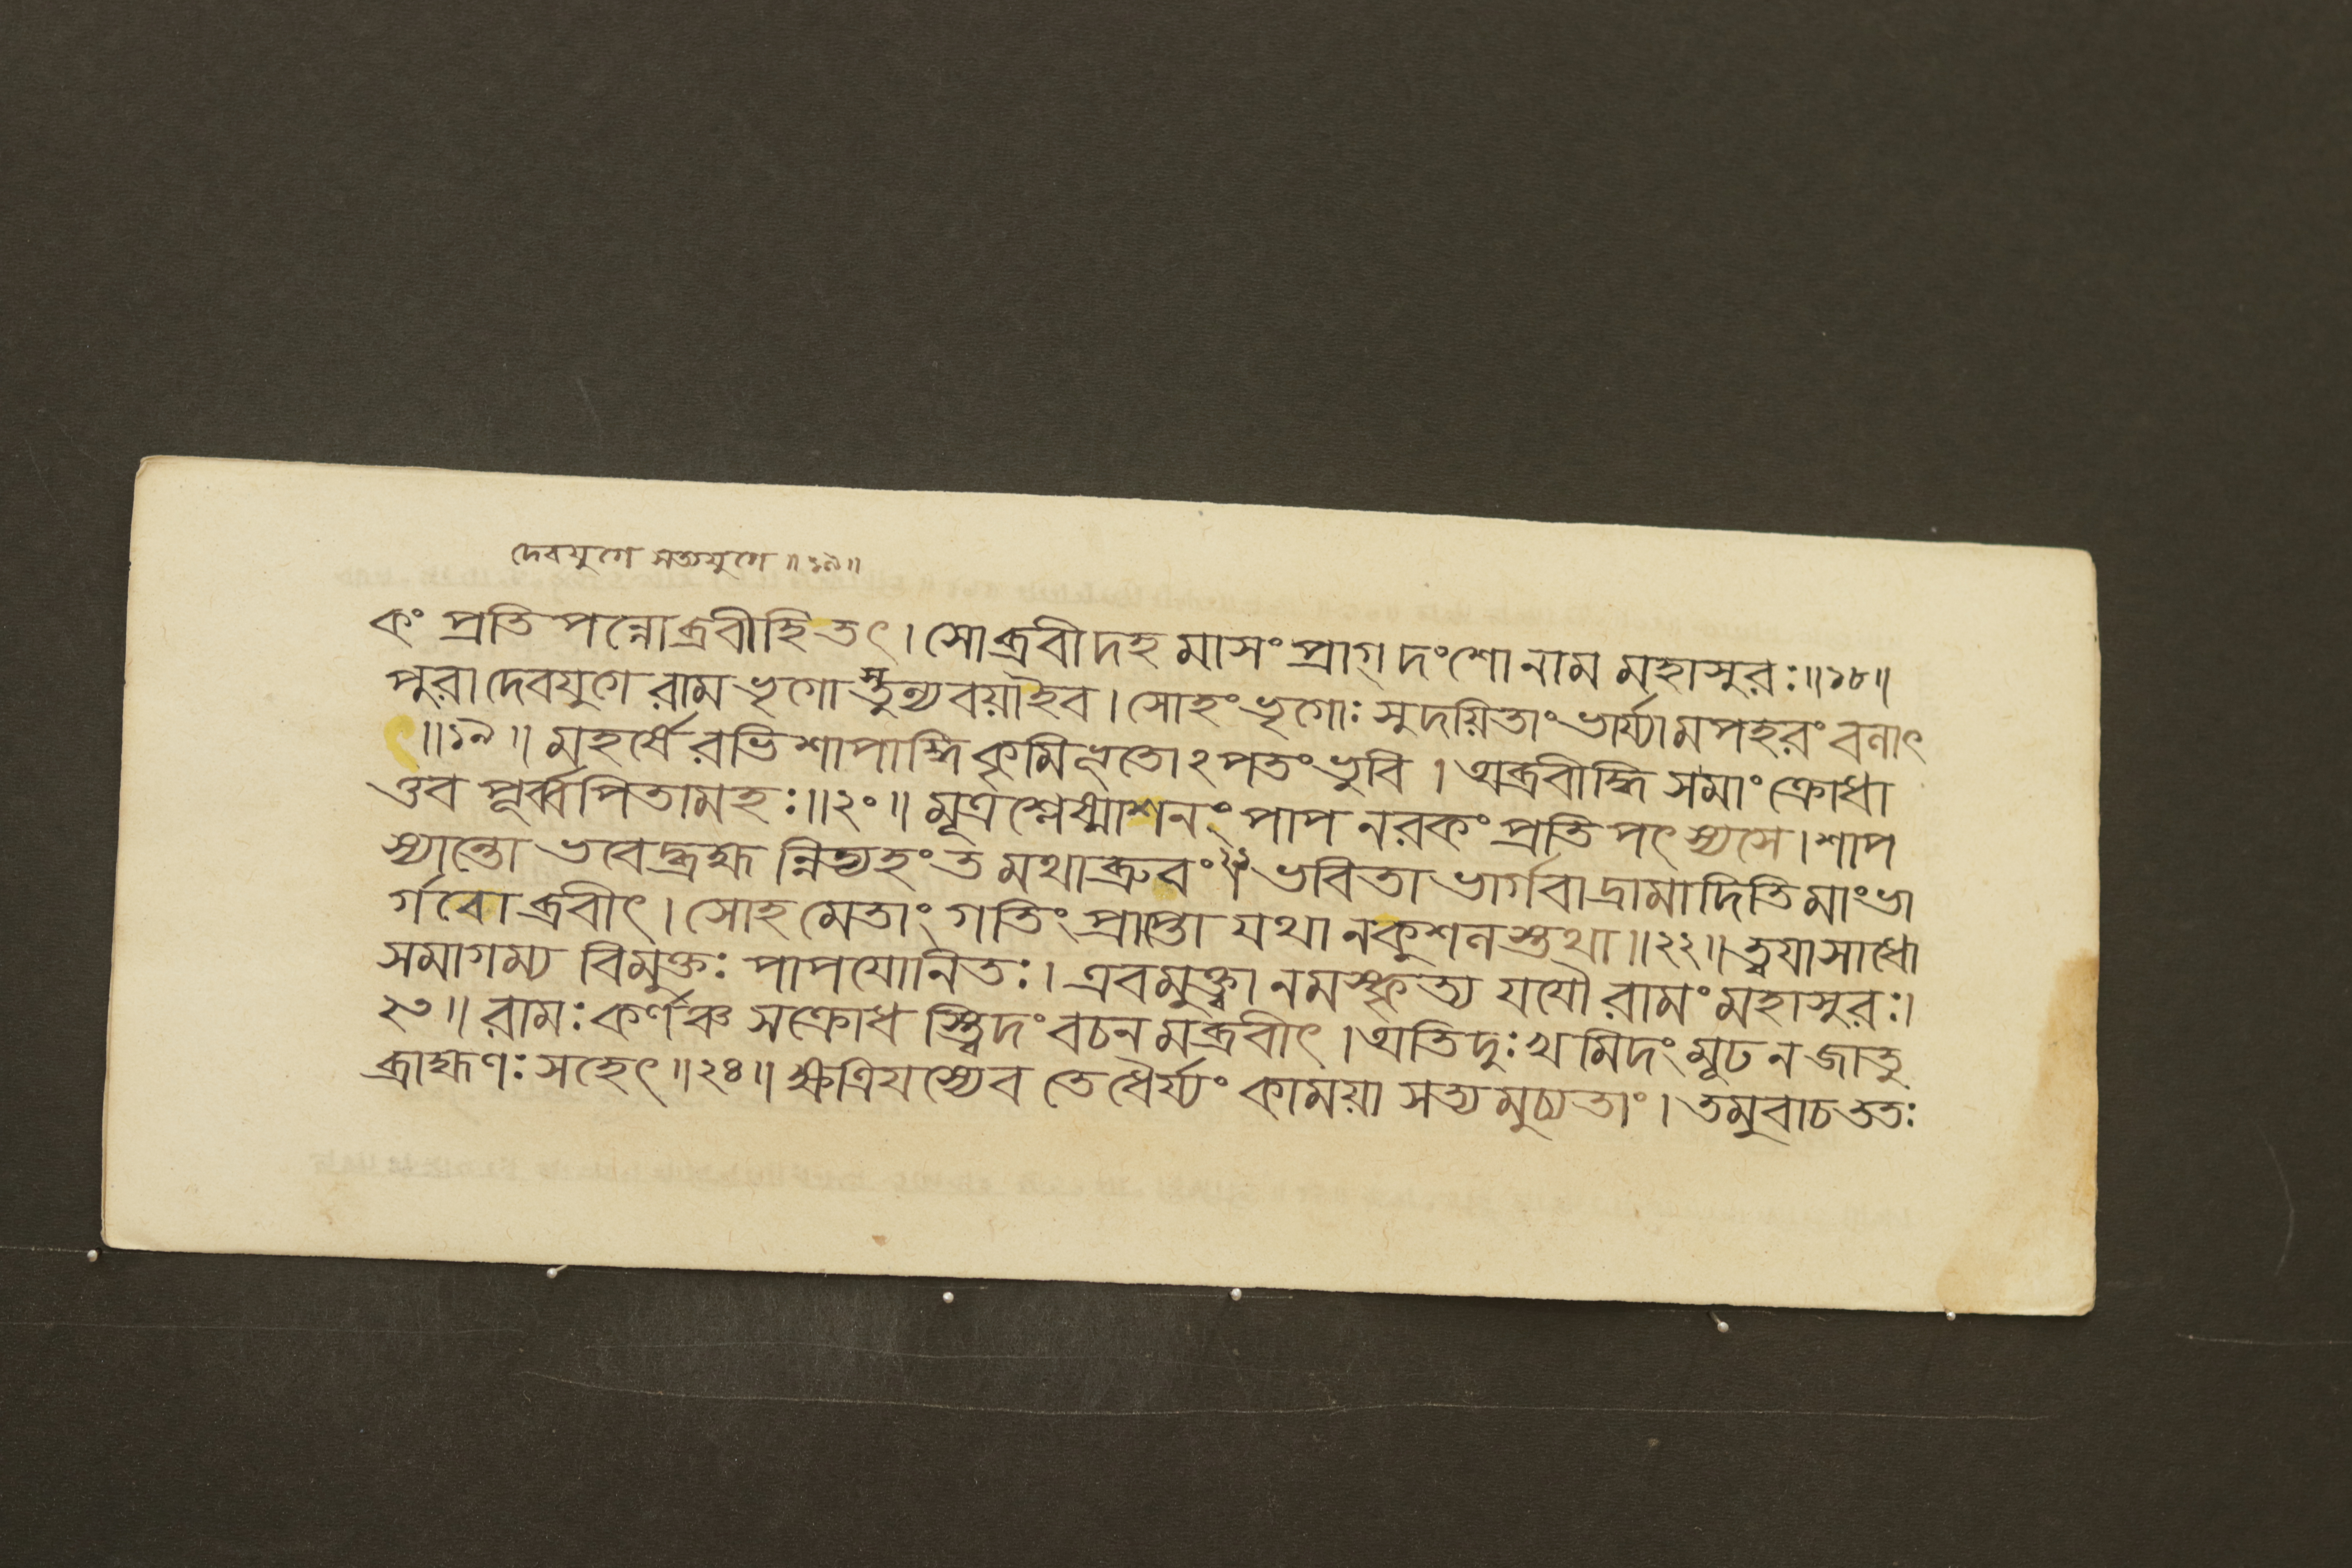 দেবযুগে সত্যযুগে ॥১৯॥
কং প্রতিপন্নোব্রবীহি তৎ । সোব্রবীদহমাসং প্রাগ্ দংশো নাম মহাসুরঃ ॥১৮॥
পুরা দেবযুগে রাম ভৃগোস্তুল্যবয়া ইব । সোহং ভৃগোঃ সুদয়িতাং ভার্য্যামপহরং বলাৎ
॥১৯॥ মহর্ষেরভিশাপাদ্ধি কৃমিভূতোঽপতং ভুবি । অব্রবীদ্ধি স মাং ক্রোধা
ত্তব পূর্ব্বপিতামহঃ ॥২০॥ মূত্রশ্লেষ্মাশনঃ পাপ নরকং প্রতিপৎস্যসে । শাপ
স্যান্তো ভবেদ্ব্রহ্মন্নিত্যহং তমথাব্রুবং ২১ । ভবিতা ভার্গবাদ্রামাদিতি মাং ভা
র্গবোব্রবীৎ । সোহমেতাং গতিং প্রাপ্তো যথা নকুশলস্তথা ॥২২॥ ত্বয়া সাধো
সমাগম্য বিমুক্তঃ পাপযোনিতঃ । এবমুক্ত্বা নমস্কৃত্য যযৌ রামং মহাসুরঃ ।
২৩॥ রামঃ কর্ণঞ্চ সক্রোধস্ত্বিদং বচনমব্রবীৎ । অতিদুঃখমিদং মূঢ ন জাতু
ব্রাহ্মণঃ সহেৎ ॥২৪॥ ক্ষত্রিয়স্যেব তে ধৈর্য্যং কাময়া সত্যমুচ্যতাং । তমুবাচ ততঃ